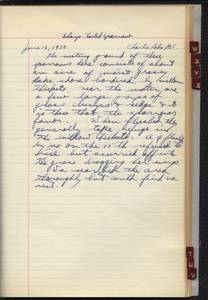 Sharp-tailed Sparrow
June 16, 1938. Charlie Lake, B.C.
The nesting ground of these
sparrows here consists of about
an acre of moist grassy
lake shore bordered by willow
thickets near the water are
a few large
grass clumps & sedge & it
is these that the sparrows
favor. When flushed they
generally take refuge in
the willow thickets. A
by us on the 15th refused to
but scurried off into
the grass dragging her wings.
We searched the area
thoroughly but could find no
nest.
W X Y Z
T U V